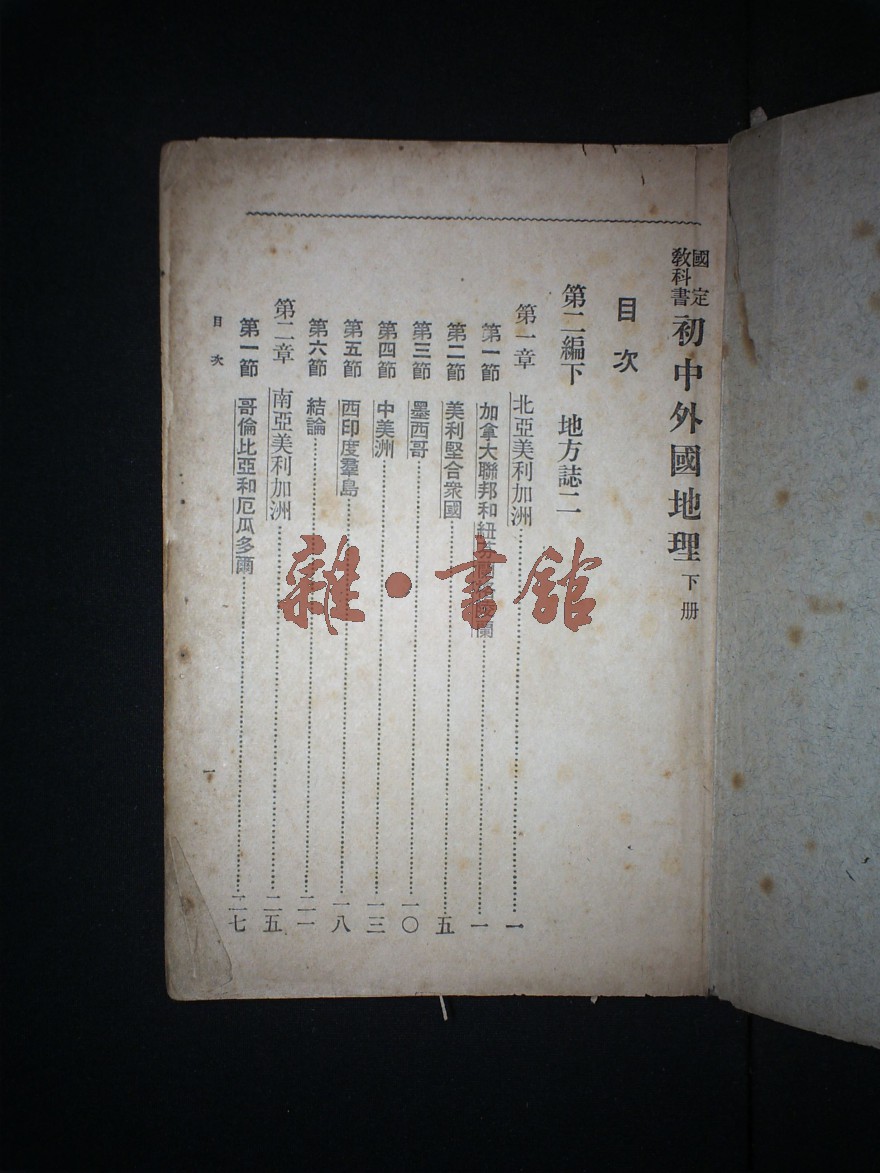 國定教科書 初中外國地理 下册
目次
第二編下 地方誌二
第一章 北亞美利加洲 一
第一節 加拿大聯邦和紐芬蘭 蘭 一
第二節 美利堅合衆國 五
第三節 墨西哥 一〇
第四節 中美洲 一三
第五節 西印度羣島 一八
第六節 結論 二一
第二章 南亞美利加洲 二五
第一節 哥倫比亞和厄瓜多爾 二七
目次
一
雜·書館